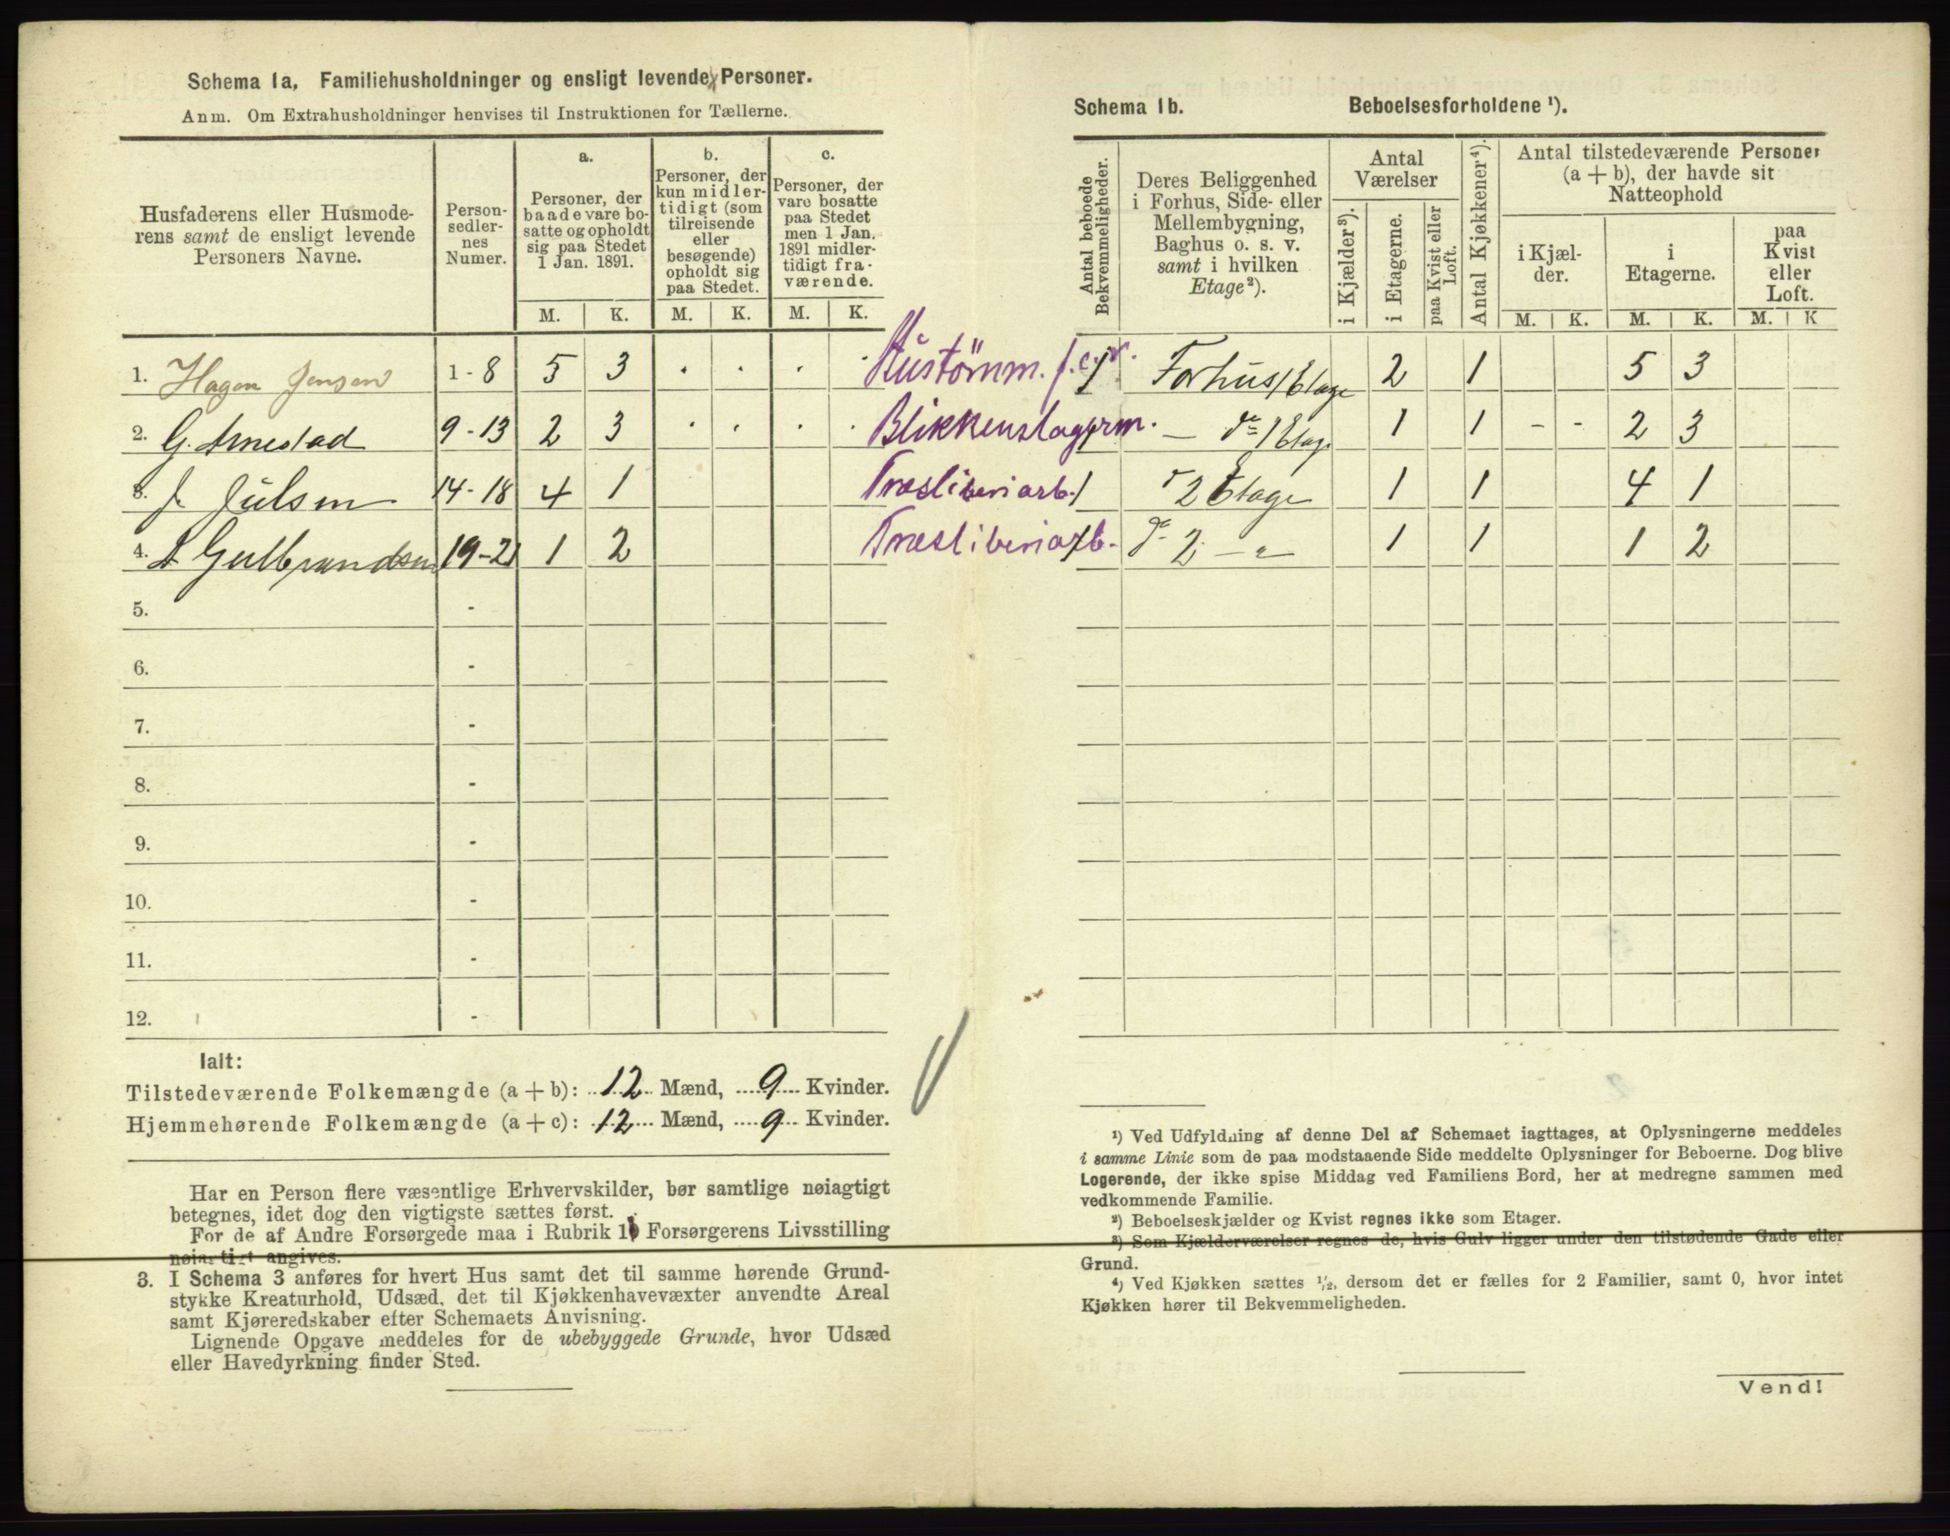 Schema 1a, Familiehusholdninger og ensligt levende Personer.
Anm. Om Extrahusholdninger henvises til Instruktionen for Tællerne.
Husfaderens eller Husmode-
rens samt de ensligt levende
Personers Navne.
Person-
sedler-
nes
Numer.
a.
Personer, der
baade vare bo-
satte og opholdt
sig paa Stedet
1 Jan. 1891.
b.
Personer, der
kun midler-
tidigt (som
tilreisende
eller
besøgende)
opholdt sig
paa Stedet.
c.
Personer, der
vare bosatte
paa Stedet
men 1 Jan.
1891 midler-
tidigt fra-
værende.
M. K. M. K. M. K.
1. Hagen Jensen 1-8 5 3 Hustömm. f. e. r.
2. G. Arnestad 9-13 2 3 Blikkenslagerm.
3. J Julsen 14-18 4 1 Træsliberiarb.
4. A Gulbrandsen 19-21 1 2 Træsliberiarb.
5. -
6. -
7. -
8. -
9. -
10. -
11. -
12. -
Ialt:
Tilstedeværende Folkemængde (a + b): 12 Mænd, 9 Kvinder.
Hjemmehørende Folkemængde (a + c): 12 Mænd, 9 Kvinder.
Har en Person flere væsentlige Erhvervskilder, bør samtlige nøiagtigt
betegnes, idet dog den vigtigste sættes først.
For de af Andre Forsørgede maa i Rubrik 10 Forsørgerens Livsstilling
nøiagtigt angives.
3. I Schema 3 anføres for hvert Hus samt det til samme hørende Grund-
stykke Kreaturhold, Udsæd, det til Kjøkkenhavevæxter anvendte Areal
samt Kjøreredskaber efter Schemaets Anvisning.
Lignende Opgave meddeles for de ubebyggede Grunde, hvor Udsæd
eller Havedyrkning finder Sted.
Schema 1b. Beboelsesforholdene ¹).
Antal beboede
Bekvemmeligheder.
Deres Beliggenhed
i Forhus, Side- eller
Mellembygning,
Baghus o. s. v.
samt i hvilken
Etage²).
Antal
Værelser
i Kjælder³).
i Etagerne.
paa Kvist eller
Loft.
Antal Kjøkkener⁴).
Antal tilstedeværende Personer
(a + b), der havde sit
Natteophold
i Kjæl-
der.
i
Etagerne.
paa
Kvist
eller
Loft.
M. K. M. K. M. K
1 Forhus 1 Etage 2 1 5 3
1 — do 1 Etage 1 1 - - 2 3
1 " 2 Etage 1 1 4 1
1 do 2 — " 1 1 1 2
¹) Ved Udfyldning af denne Del af Schemaet iagttages, at Oplysningerne meddeles
i samme Linie som de paa modstaaende Side meddelte Oplysninger for Beboerne. Dog blive
Logerende, der ikke spise Middag ved Familiens Bord, her at medregne sammen med
vedkommende Familie.
²) Beboelseskjælder og Kvist regnes ikke som Etager.
³) Som Kjælderværelser regnes de, hvis Gulv ligger under den tilstødende Gade eller
Grund.
⁴) Ved Kjøkken sættes ¹/₂, dersom det er fælles for 2 Familier, samt 0, hvor intet
Kjøkken hører til Bekvemmeligheden.
Vend!